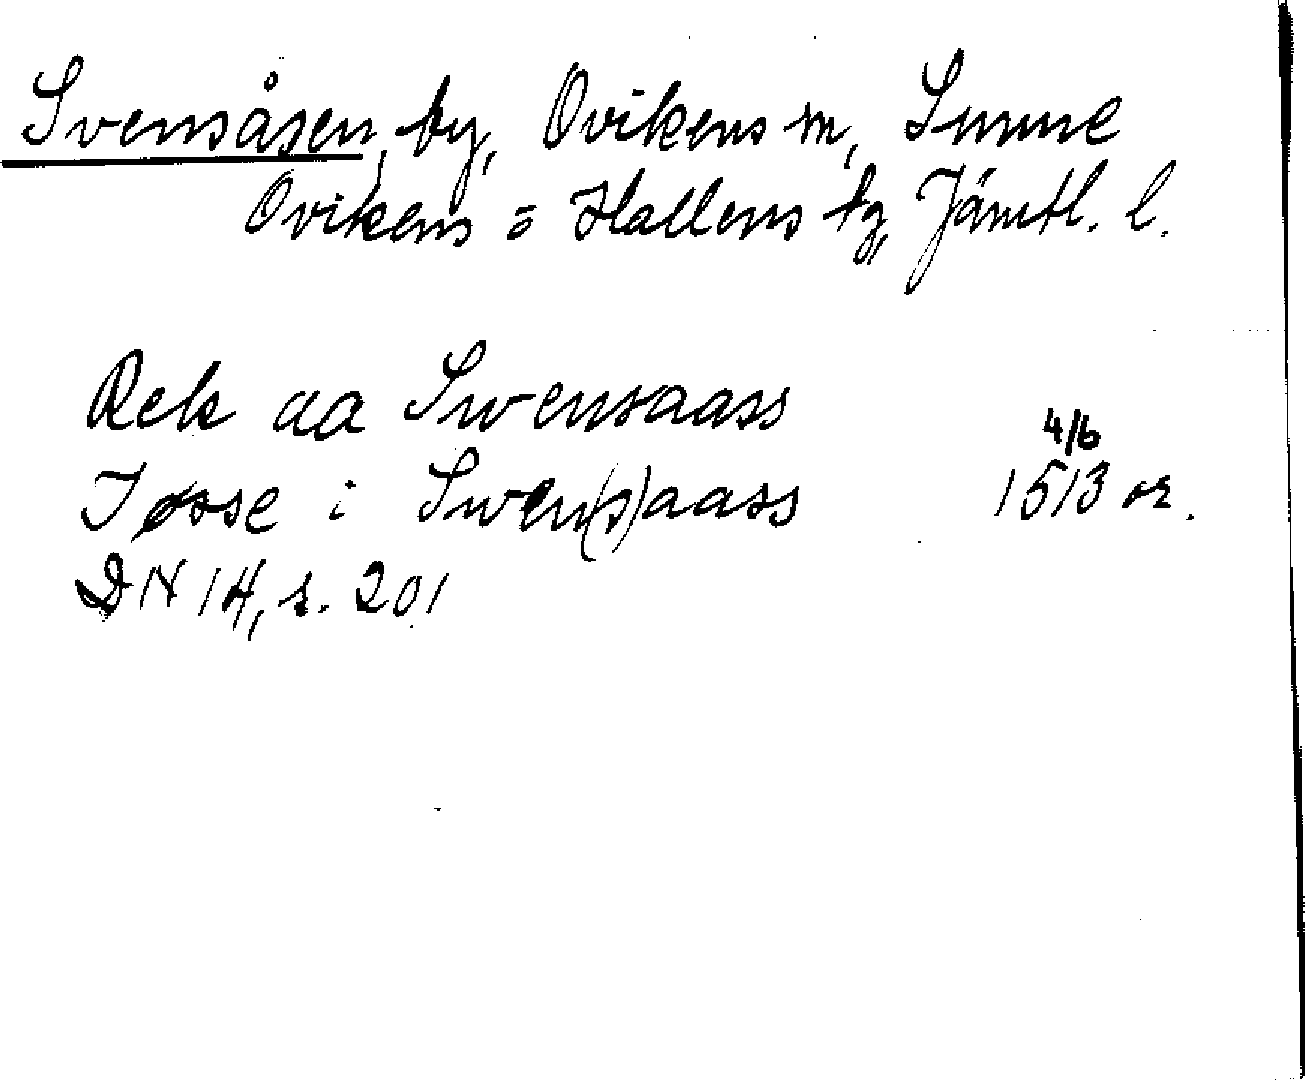 Svensåsen, by, Ovikens sn, Sunne
Ovikens o Hallens tg, Jämtl. l.
Rek aa Swensaass
4/6
Jøsse i Swen(s)aass 1513 or.
DN 14, s. 201